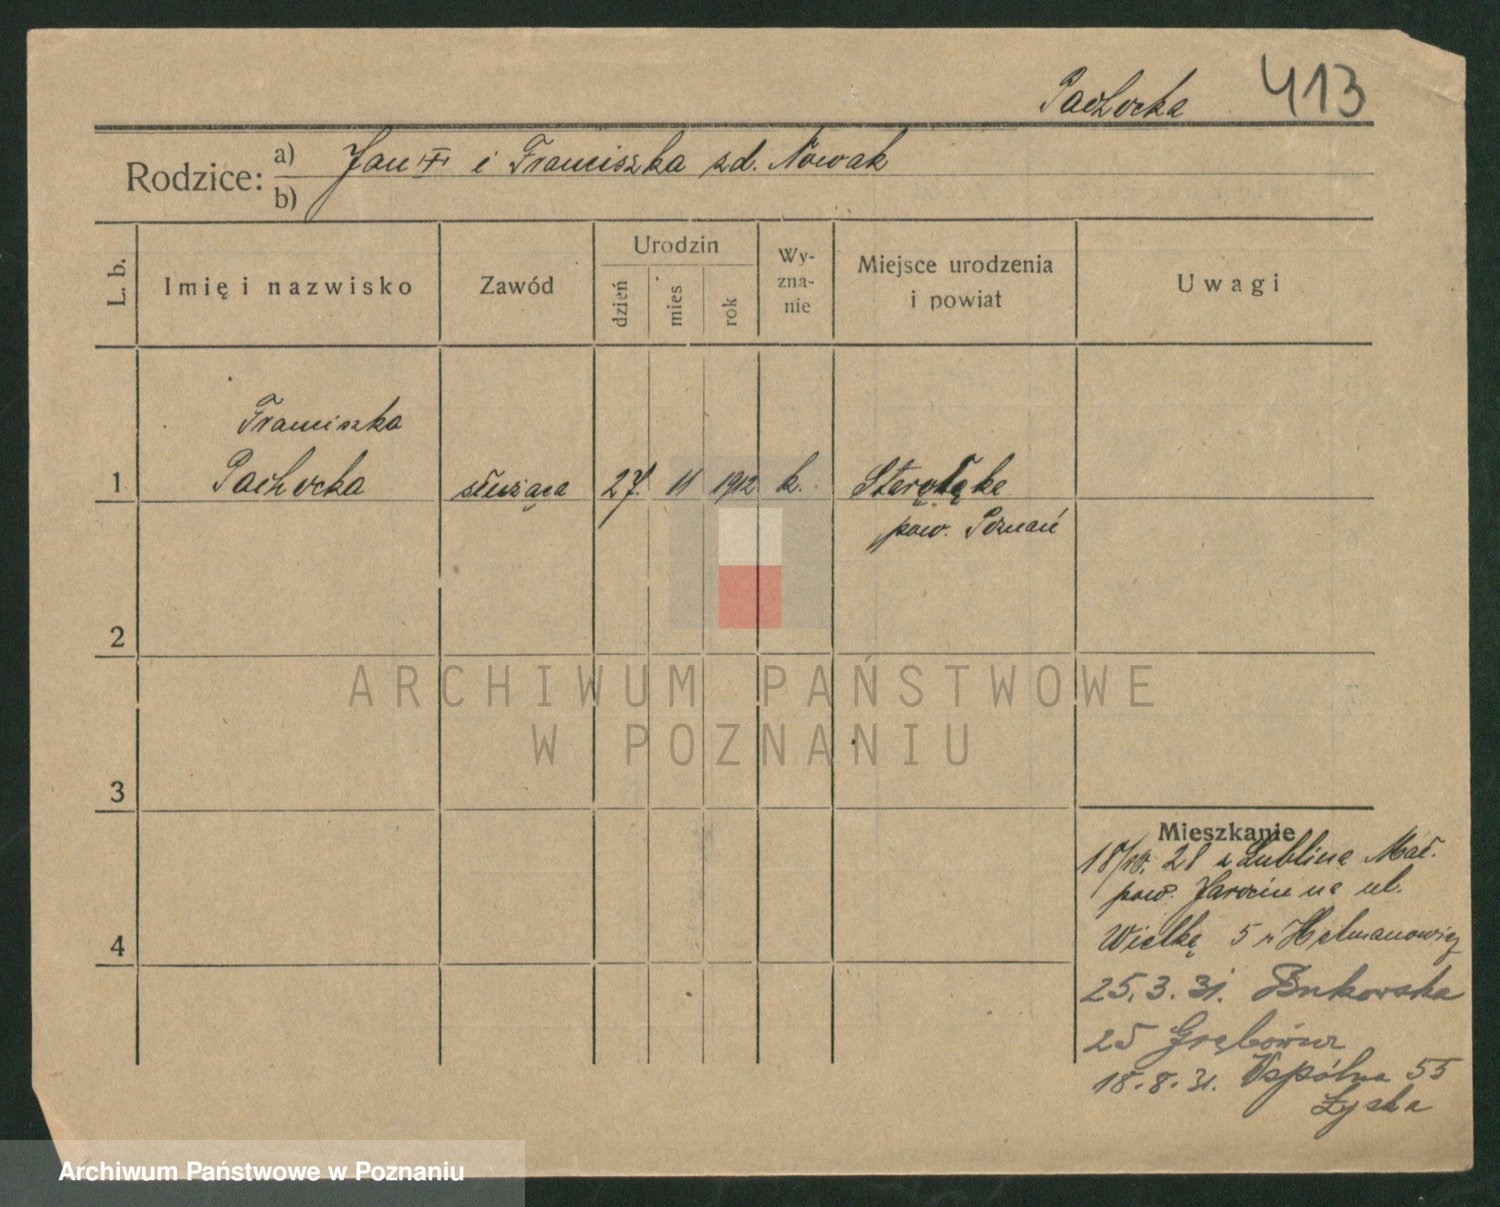 Pachocka 413
Rodzice: a) Jan i Franciszka zd. Nowak
b)
L. b. Imię i nazwisko Zawód Urodzin dzień mies rok Wy-zna-nie Miejsce urodzenia i powiat Uwagi
Franciszka
1 Pachocka służąca 27. 11 1912 k. Starołęka
pow. Poznań
2
ARCHIWUM PAŃSTWOWE
W POZNANIU
3
Mieszkanie
28 z Lublina Mał.
pow. Jarocin na ul.
4 Wielką 5
25.3.31. Bukowska
25
18.8.31. Wspólna 55
Łyska
Archiwum Państwowe w Poznaniu